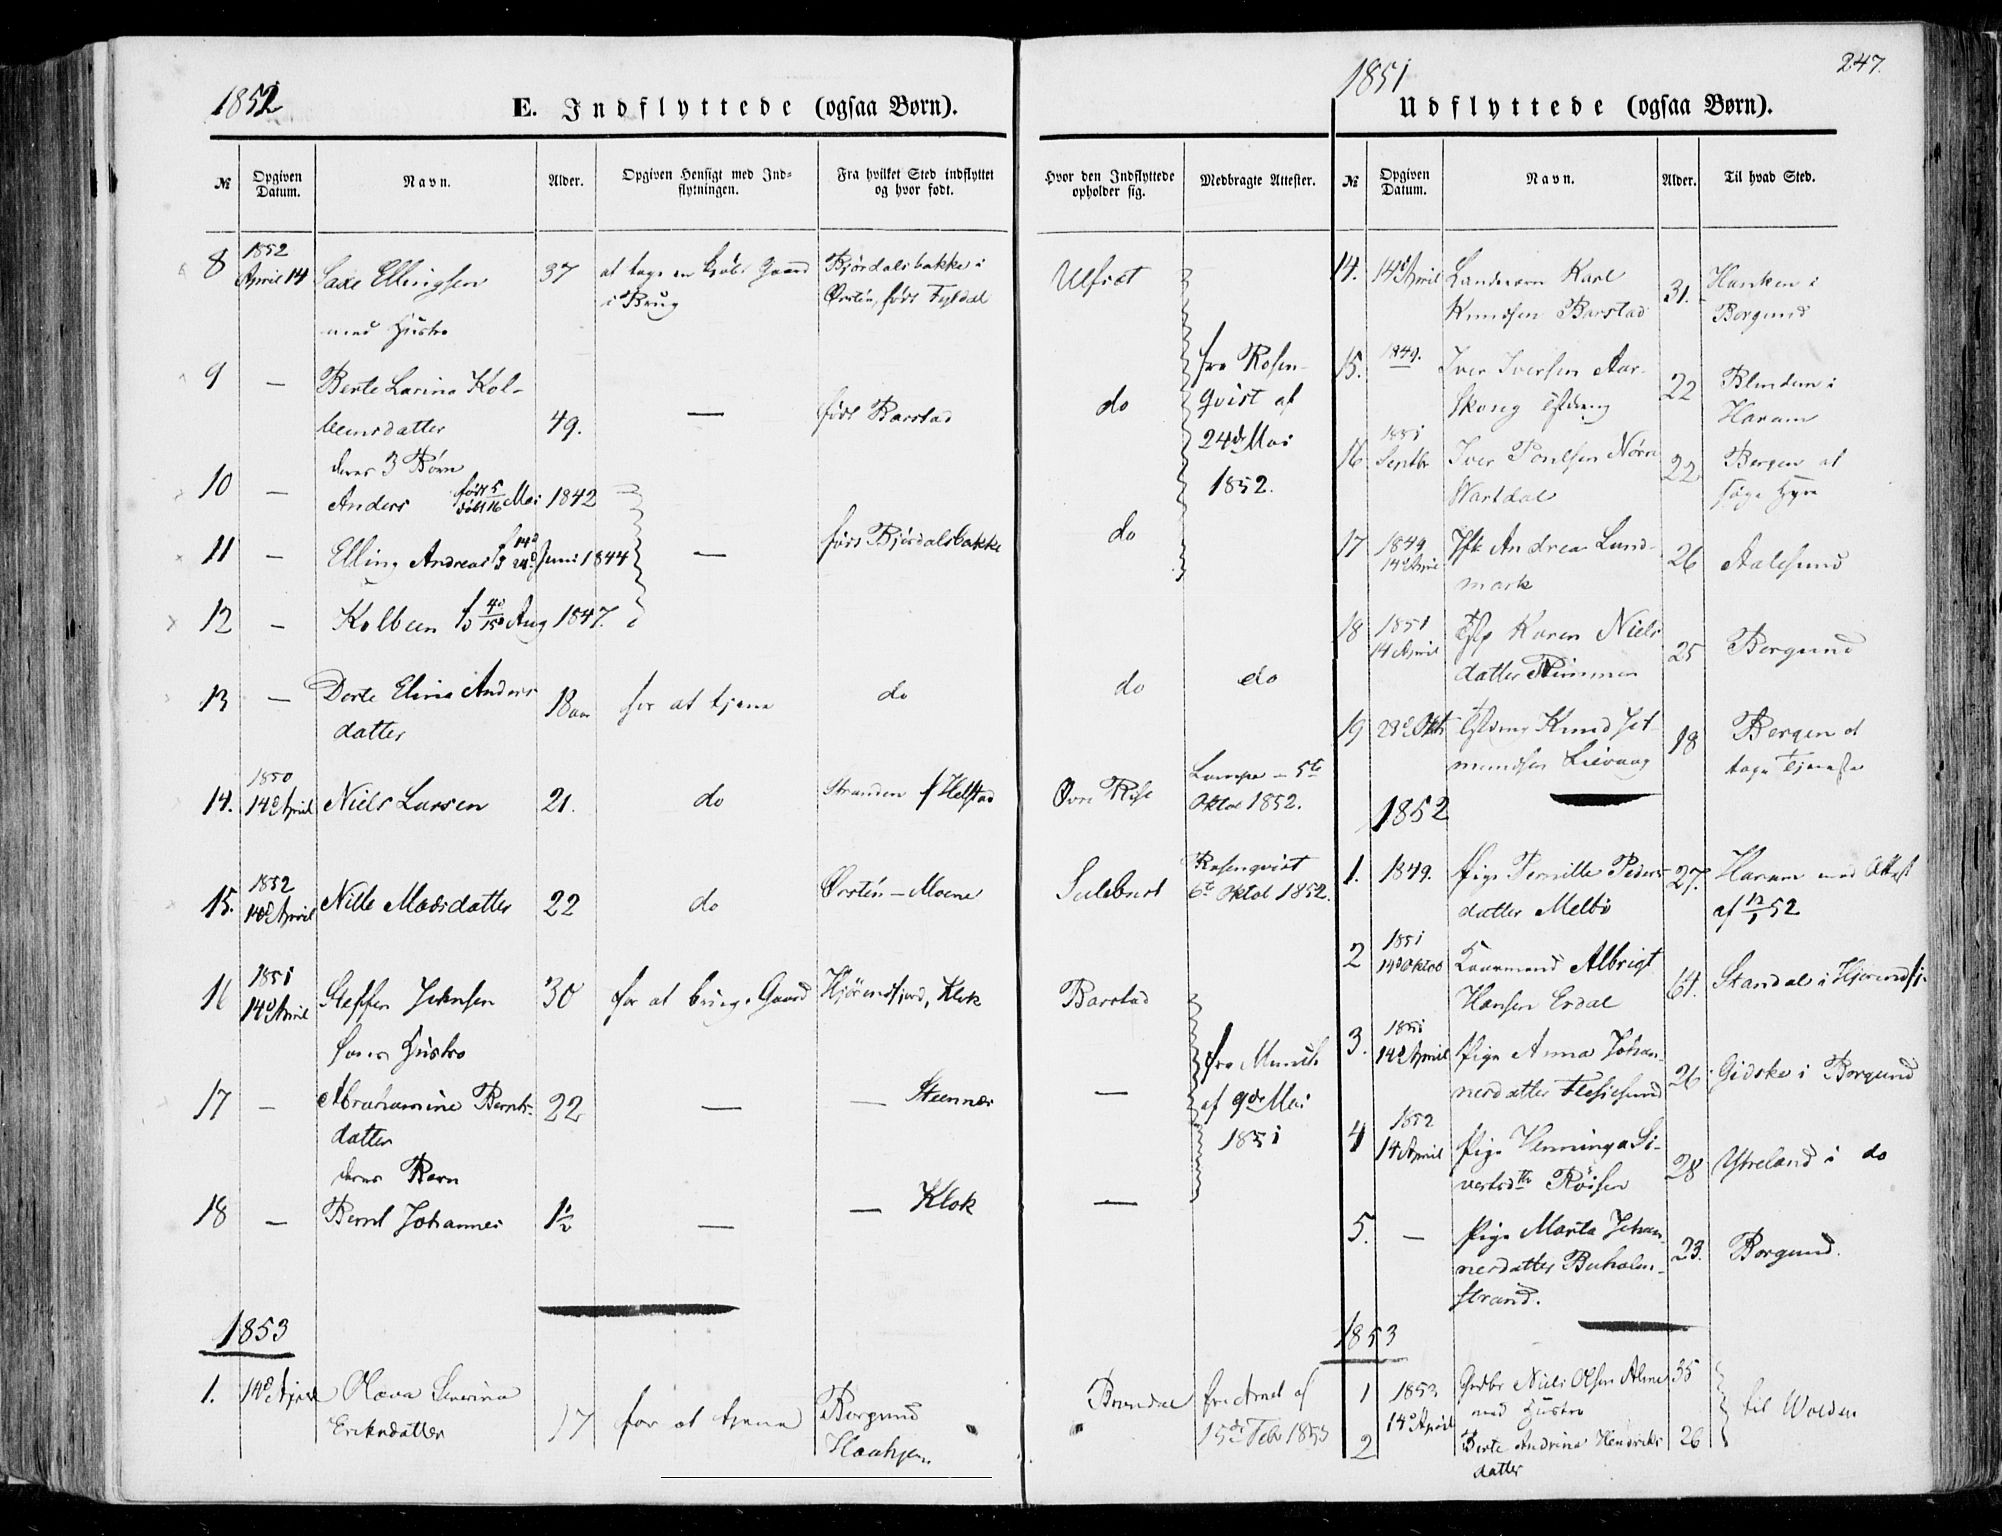 247.
1852
E. Indflyttede (ogsaa Børn).
№
Opgiven Datum.
Navn.
Alder.
Opgiven Hensigt med Ind-
flytningen.
Fra hvilket Sted indflyttet
og hvor født.
Hvor den Indflyttede
opholder sig.
Medbragte Attester.
8 1852 April 14 Saxe Ellingsen 37 at tage en Gaard Bjørdalsbakke i Ulsæt
med Hustro i Brug Ørsten, født
9 — Berte Larina Kol-
beensdatter 49. — født Barstad do
fra Rosen-
qvist af
24de Mai
1852.
deres 3 Børn
10 — Anders født 5 døbt 16 Mai 1842
11 — Elling Andreas Juni 1844 — født Bjørdalsbakke do
12 — Kolbeen Aug 1847.
13 — Dorte Elina Anders
datter 18 aar for at tjene do do do
14. 1850 14de April Niels Larsen 21. do Stranden f Helstad Øvre Lampe – 5te
Oktob 1852.
15. 1852 14de April Nille Madsdatter 22 do Ørsten – Moene Sulebust Rosenqvist
6te Oktob 1852.
16 1851 14de April Steffen Johnsen 30 for at bruge Gaard Hjørendfjord, Klok Barstad
hans Hustro
17 — Abrahamine Bernts-
datter 22 — — Steennes —
fra Munch
af 9de Mai
1851
deres Barn
18 — Bernt Johannes 1½ — — Klok —
1853
1. 14de April Olava Severina
Eriksdatter 17 for at tjene Borgund Brandal fra Arnet af
15de Febr 1853
1851
Udflyttede (ogsaa Børn).
№
Opgiven Datum.
Navn.
Alder.
Til hvad Sted.
14. 14de April Landværn Karl
Knudsen Barstad 31. Hanken i
Borgund
15. 1849. Iver Iversen Aar-
skoug 22 Blindem i
Haram
16 1851 Septbr Iver Poulsen Nørre
Vartdal 22 Bergen at
søge Hyre
17 1849 14de April Andrea Lund-
mark 26 Aalesund
18 1851 14 April Karen Niels
datter Rimmen 25 Borgund
19 28de Oktb Knud Jet-
mundsen Lievaag 18 Bergen at
tage Tjeneste
1852
1. 1849. Pige Pernille Peders-
datter Melbø 27. Haram med Attest
af 12/1 52
2 1851 14de Oktob Kaarmand Albrigt
Hansen Erdal 61. Standal i Hjørendfj.
3. 1851 14de April Pige Anna Johan-
nesdatter Flesiesund 26. Gidske i Borgund
4 1852 14 April Pige Henninga Si-
vertsdtr Røisen 28 Ytreland i do
5. — Pige Marta Johan-
nesdatter Buholm-
strand. 23. Borgund.
1853
1 1853 14de April Grdbr Niels Olsen Alme 35
med Hustro
til Wolden
2 Berte Andrine Hendriks 26
datter